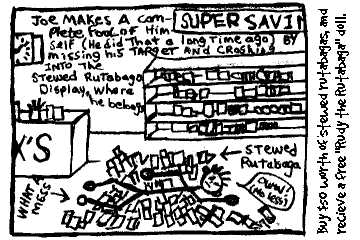 JOE MAKES A COM-
PLETE FOOL OF HIM-
SELF (He did that a long time ago) BY
missing his TARGET AND CROSHING
INTO THE
STEWED RUTABAGA
Display, where
he belongs
SUPER SAVI
X'S
STEWED
RUTABAGA
WHAT A
MESS
Owww!
(no less)
Buy $50 worth of stewed rutabagas, and
recieve a free "Rudy the Rutabaga" doll.